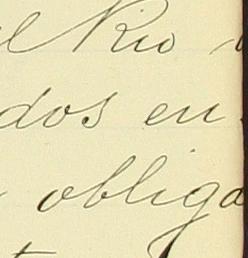 el Rio
dos en
obliga